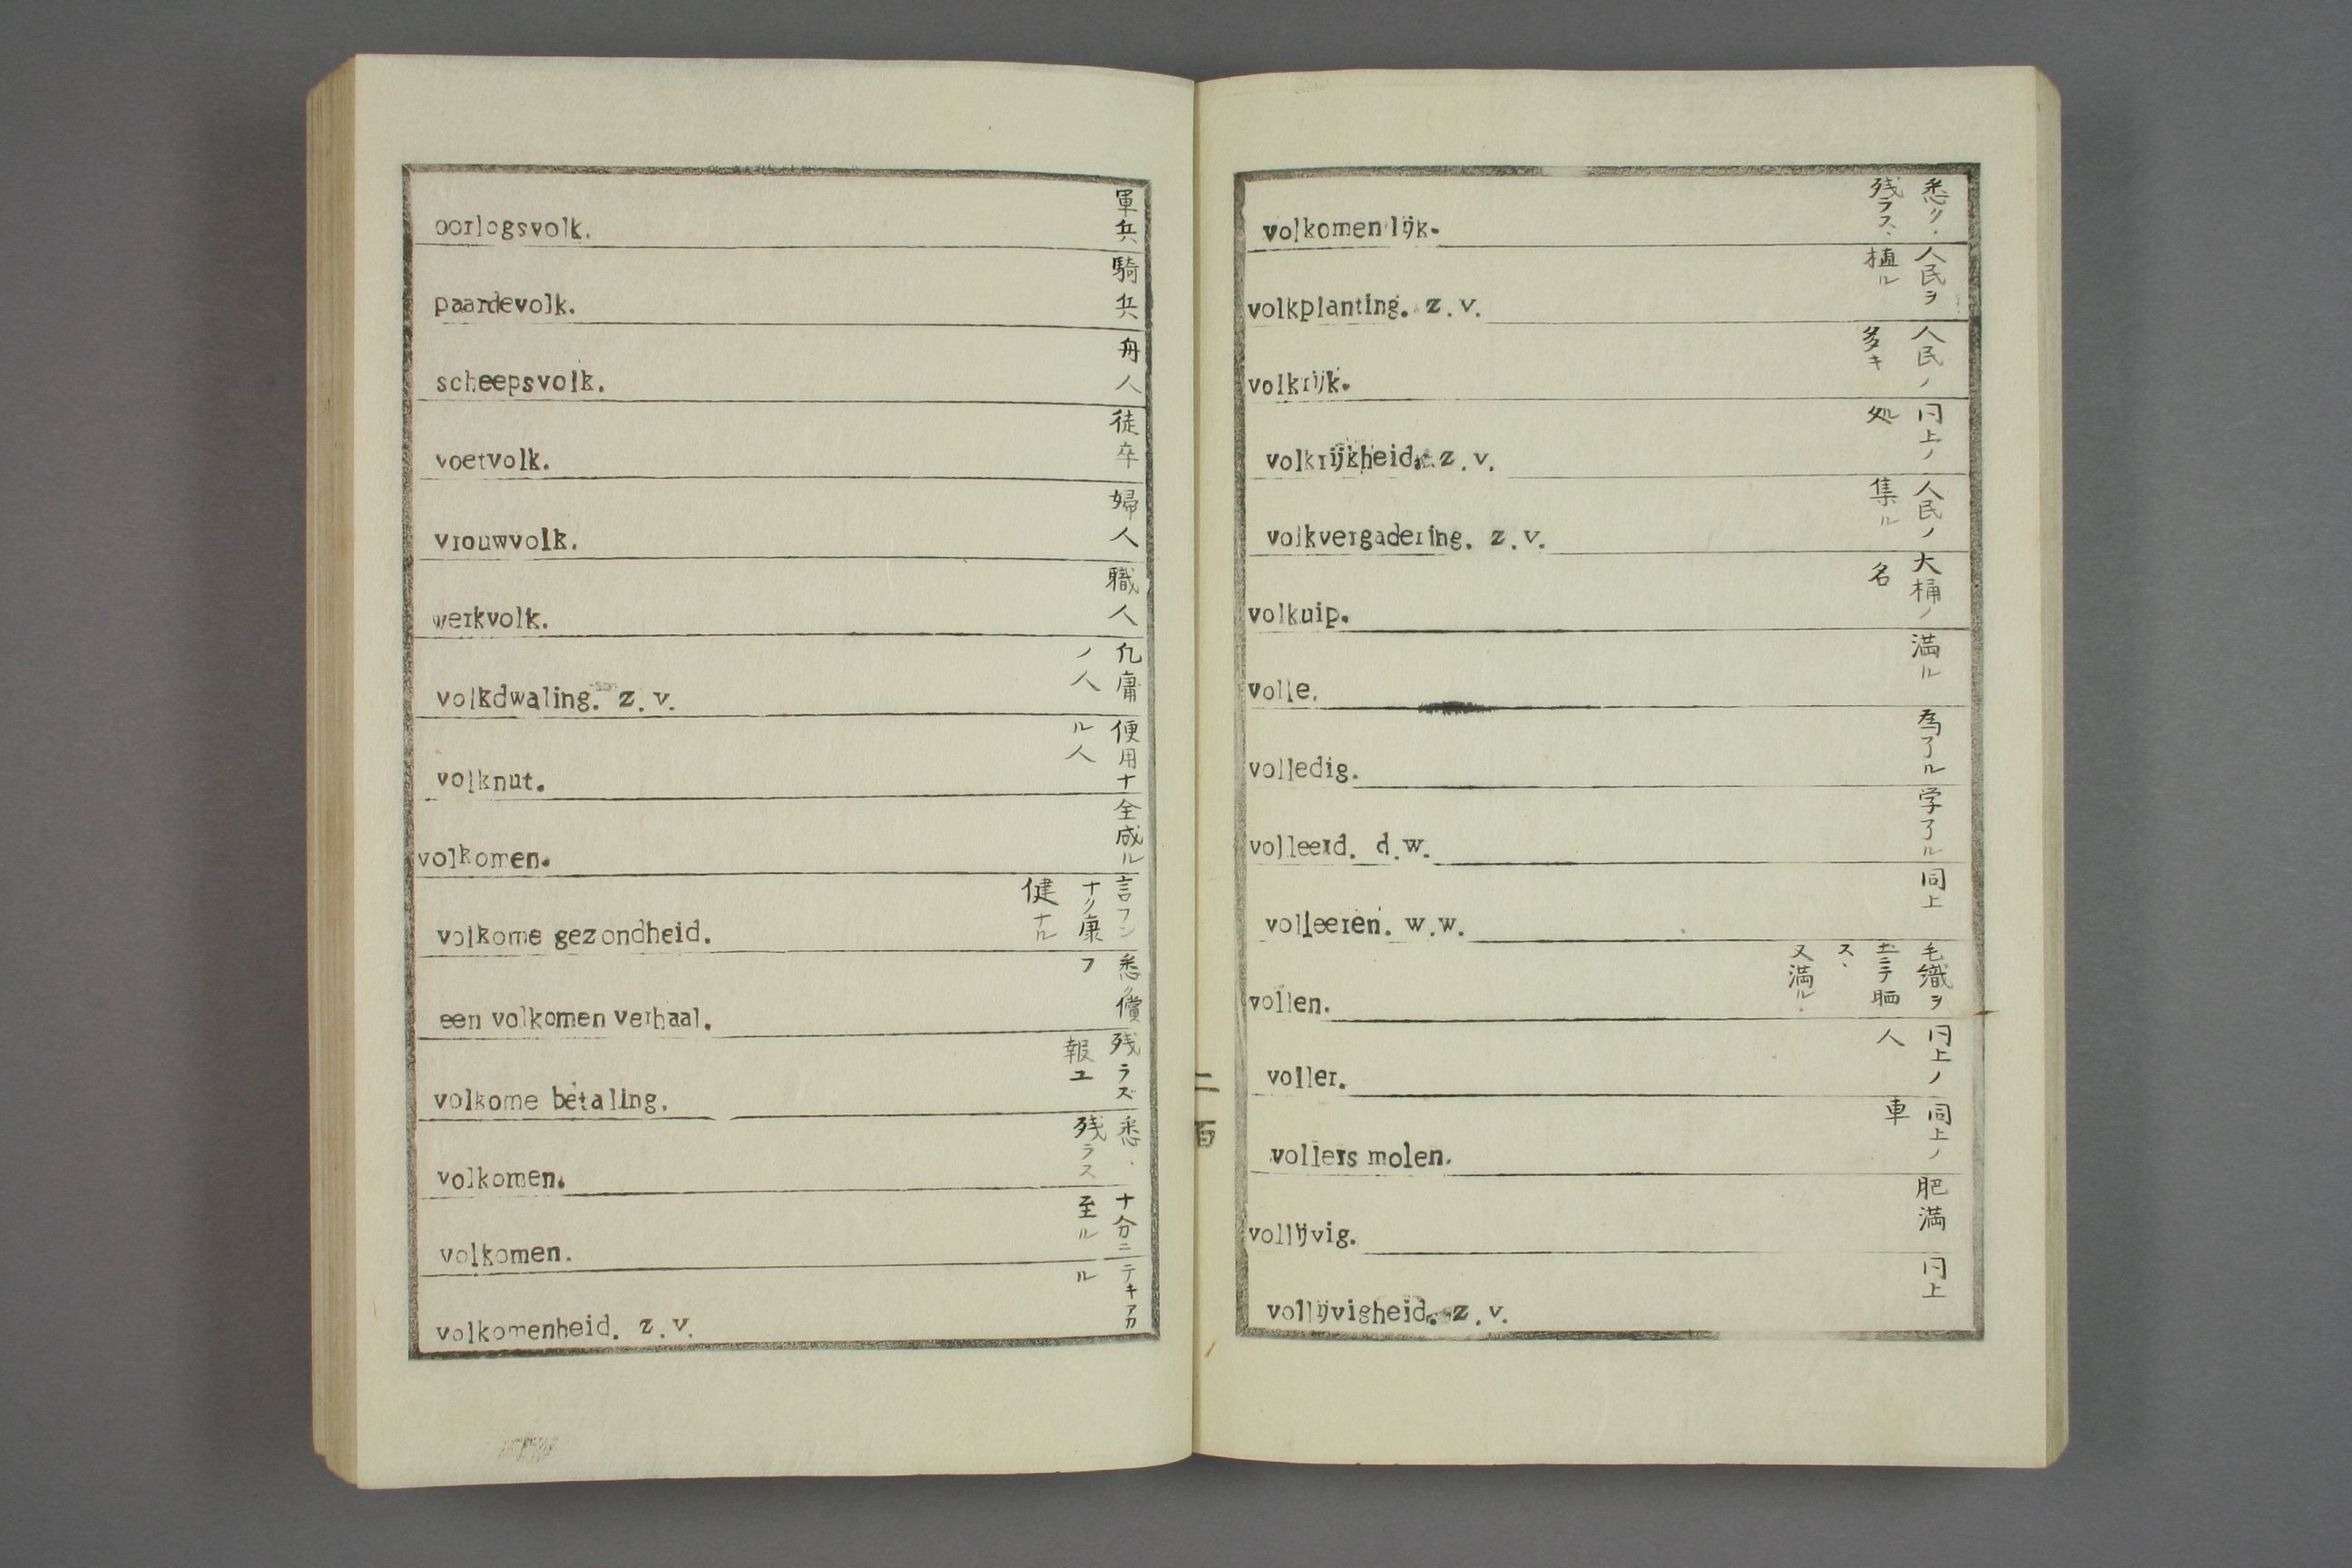 oorlogsvolk. 軍兵
paardevolk. 騎兵
scheepsvolk. 舟人
voetvolk. 徒卒
vrouwvolk. 婦人
werkvolk. 職人
volkdwaling. z.v. 凢庸ノ人
volknut. 便用ナル人
volkomen. 全成ル
volkome gezondheid. 言フンナク康健ナル
een volkomen verhaal. 悉ク償フ
volkome betaling. 残ラズ報ユ
volkomen. 悉、残ラス
volkomen. 十分ニ至ル
volkomenheid. z.v. テキアカル
二百
volkomenlijk. 悉ク、残ラス、
volkplanting. z.v. 人民ヲ植ル
volkrijk. 人民ノ多キ
volkrijkheid. z.v. 仝上ノ処
volkvergadering. z.v. 人民ノ集ル
volkuip. 大桶ノ名
volle. 満ル
volledig. 為了ル
volleerd. d.w. 学了ル
volleeren. w.w. 同上
vollen. 毛織ヲ土ニテ晒ス、又満ル、
voller. 同上ノ人
vollers molen. 同上ノ車
vollijvig. 肥満
vollijvigheid. z.v. 同上